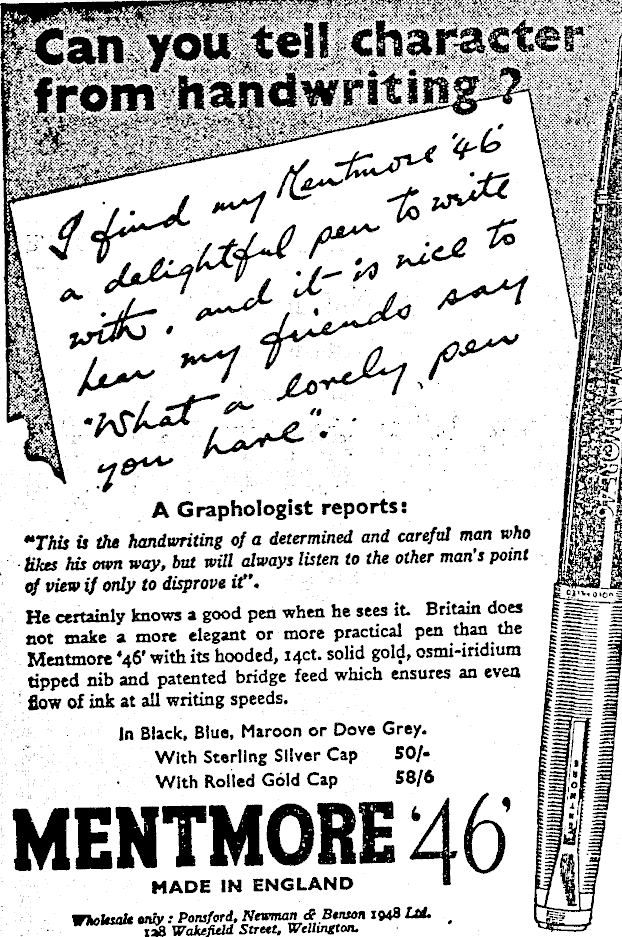 Can you tell character
from handwriting ?
I find my Mentmore '46'
a delightful pen to write
with, and it is nice to
hear my friends say
"What a lovely pen
you have".
A Graphologist reports:
"This is the handwriting of a determined and careful man who
likes his own way, but will always listen to the other man's point
of view if only to disprove it".
He certainly knows a good pen when he sees it. Britain does
not make a more elegant or more practical pen than the
Mentmore '46' with its hooded, 14ct. solid gold, osmi-iridium
tipped nib and patented bridge feed which ensures an even
flow of ink at all writing speeds.
In Black, Blue, Maroon or Dove Grey.
With Sterling Silver Cap 50/-
With Rolled Gold Cap 58/6
MENTMORE '46'
MADE IN ENGLAND
Wholesale only : Ponsford, Newman & Benson 1948 Ltd.
128 Wakefield Street, Wellington.
MENTMORE 46